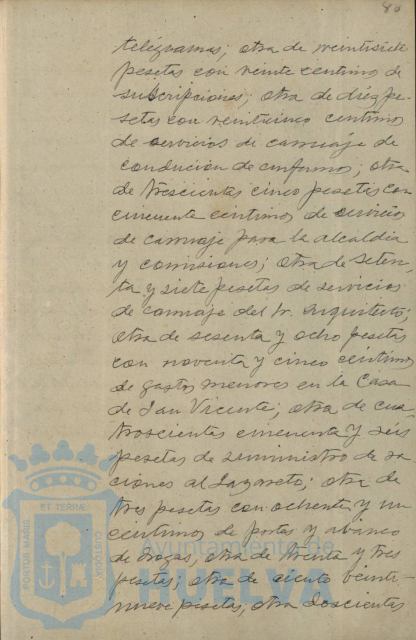 80
telégramas; otra de veintisiete
pesetas con veinte centimos de
suscripciones; otra de diez pe-
setas con veinticinco centimos
de servicios de carruaje de
condución de enfermos; otra
de trescientas cinco pesetas con
cincuenta centimos de servicios
de carruaje para la alcaldia
y comisiones; otra de seten-
ta y siete pesetas de servicios
de carruaje del Sr. Arquitecto;
otra de sesenta y ocho pesetas
con noventa y cinco centimos
de gastos menores en la Casa
de San Vicente; otra de cua-
troscientas cincuenta y seis
pesetas de suministro de ra-
ciones al Lazareto; otra de
tres pesetas con ochenta y un
centimos de portes y
de drogas, otra de treinta y tres
pesetas; otra de ciento veinti-
nueve pesetas, otra doscientas
PORTUS MARIS
ET TERRAE
CUSTODIA
ayuntamiento de
HUELVA